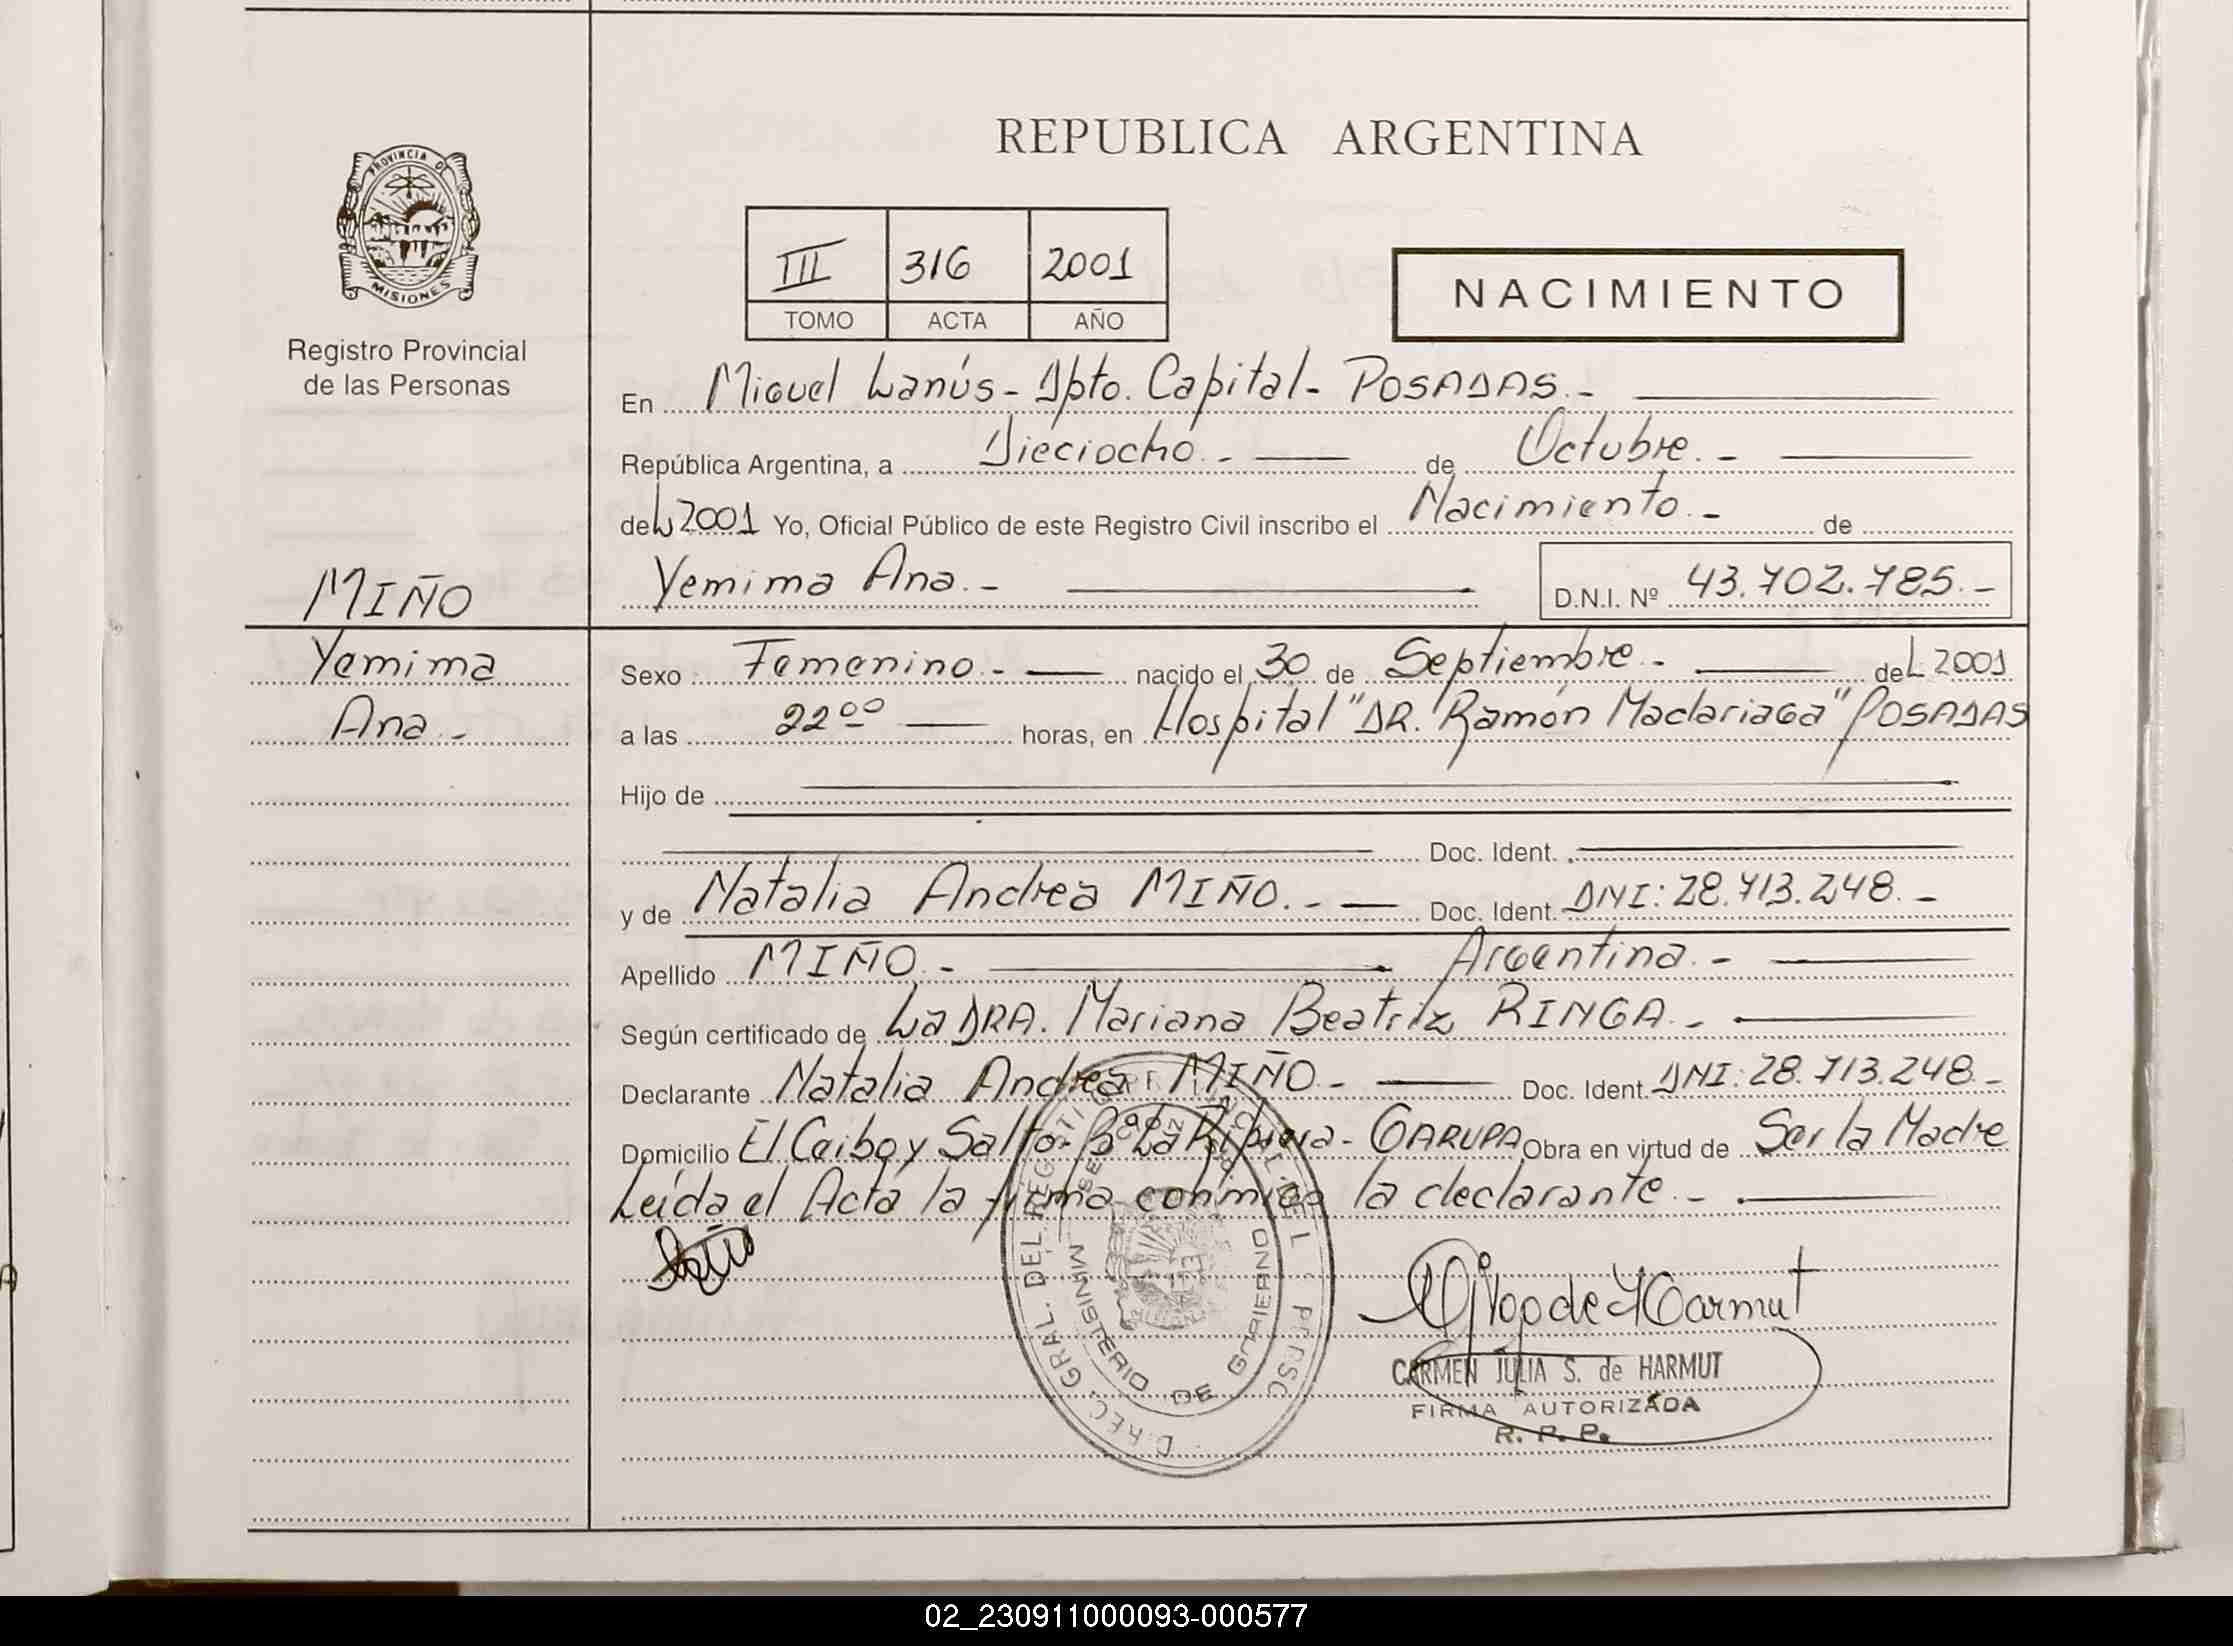 REPUBLICA ARGENTINA
PROVINCIA DE
MISIONES
Registro Provincial
de las Personas
III 316 2001
TOMO ACTA AÑO
NACIMIENTO
En Miguel Lanús - Dpto. Capital - POSADAS.-
República Argentina, a Dieciocho.- de Octubre.-
deL 2001 Yo, Oficial Público de este Registro Civil inscribo el Nacimiento.- de
MIÑO
Yemima Ana.- D.N.I. Nº 43.702.785.-
Yemima
Ana.-
Sexo Femenino.- nacido el 30 de Septiembre.- deL 2001
a las 22⁰⁰ horas, en Hospital "DR. Ramón Madariaga" POSADAS
Hijo de
Doc. Ident.
y de Natalia Andrea MIÑO.- Doc. Ident. DNI: 28.713.248.-
Apellido MIÑO.- Argentina.-
Según certificado de La DRA. Mariana Beatriz RINGA.-
Declarante Natalia Andrea MIÑO.- Doc. Ident. DNI: 28.713.248.-
Domicilio El Ceibo y Salto - Bº La Ribera - GARUPA Obra en virtud de Ser la Madre
Leída el Acta la firma conmigo la declarante.-
MINISTERIO DE GOBIERNO
CARMEN JULIA S. de HARMUT
FIRMA AUTORIZADA
R. P. P.
02_230911000093-000577